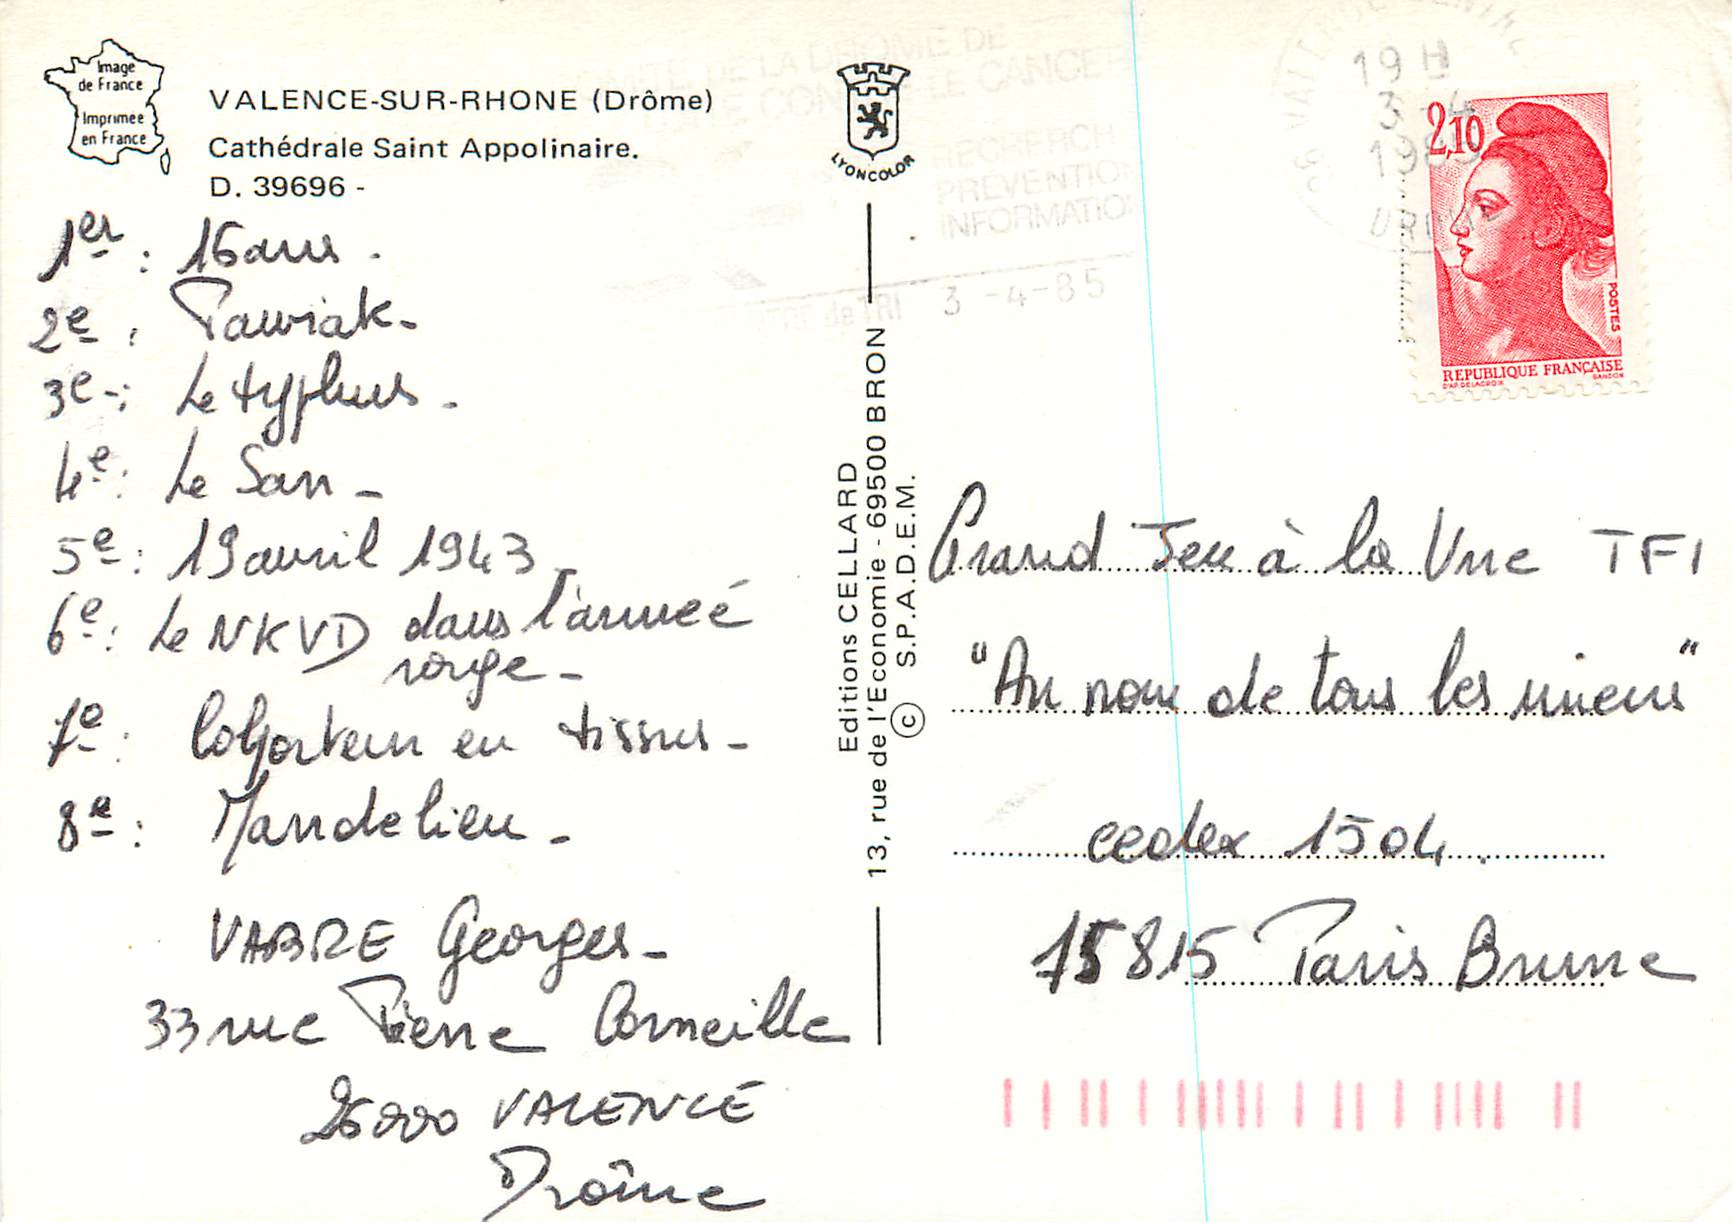 Image
de France
Imprimée
en France
VALENCE-SUR-RHONE (Drôme)
Cathédrale Saint Appolinaire.
D. 39696 -
1er : 16 ans .
2e : Pawiak -
3e - : Le typhus .
4e : Le San -
5e : 19 avril 1943 -
6e : Le NKVD dans l'armée
rouge -
7e : Colporteur en tissus -
8e : Mandelieu -
VABRE Georges -
33 rue Pierre Corneille
26000 VALENCE
Drôme
LYONCOLOR
Editions CELLARD
13, rue de l'Economie - 69500 BRON
© S.P.A.D.E.M.
COMITE DE LA DROME DE
LUTTE CONTRE LE CANCER
RECHERCH
PREVENTION
INFORMATIO
CENTRE de TRI 3 -4-85
19 H
3 - 4
1985
DROME
2,10
POSTES
REPUBLIQUE FRANÇAISE
D'AP. DELACROIX GANDON
Grand Jeu à la Une TF1
"Au nom de tous les miens"
cedex 1504.
75815 Paris Brune